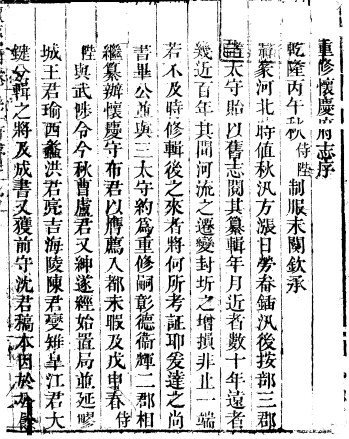 重修懷慶府志序
乾隆丙午秋侍陛制服未闋欽承
簡蒙河北時值秋汛方漲日勞畚鍤汛後按部三郡
諸太守貽以舊志閱其纂輯年月近者數十年遠者
幾近百年其間河流之遷變封圻之增損非止一端
若不及時修輯後之來者將何所考証耶爰達之尚
書畢公並與三太守約爲重修嗣彰德衞輝二郡相
繼纂辦懷慶守布君以膺薦入都未暇及戊申春侍
陛與武陟令今秋曹盧君又紳遂經始置局並延嘐
城王君瑜西蠡洪君亮吉海陵陳君燮雉皐江君大
鍵分輯之將及成書又獲前守沈君稿本因於